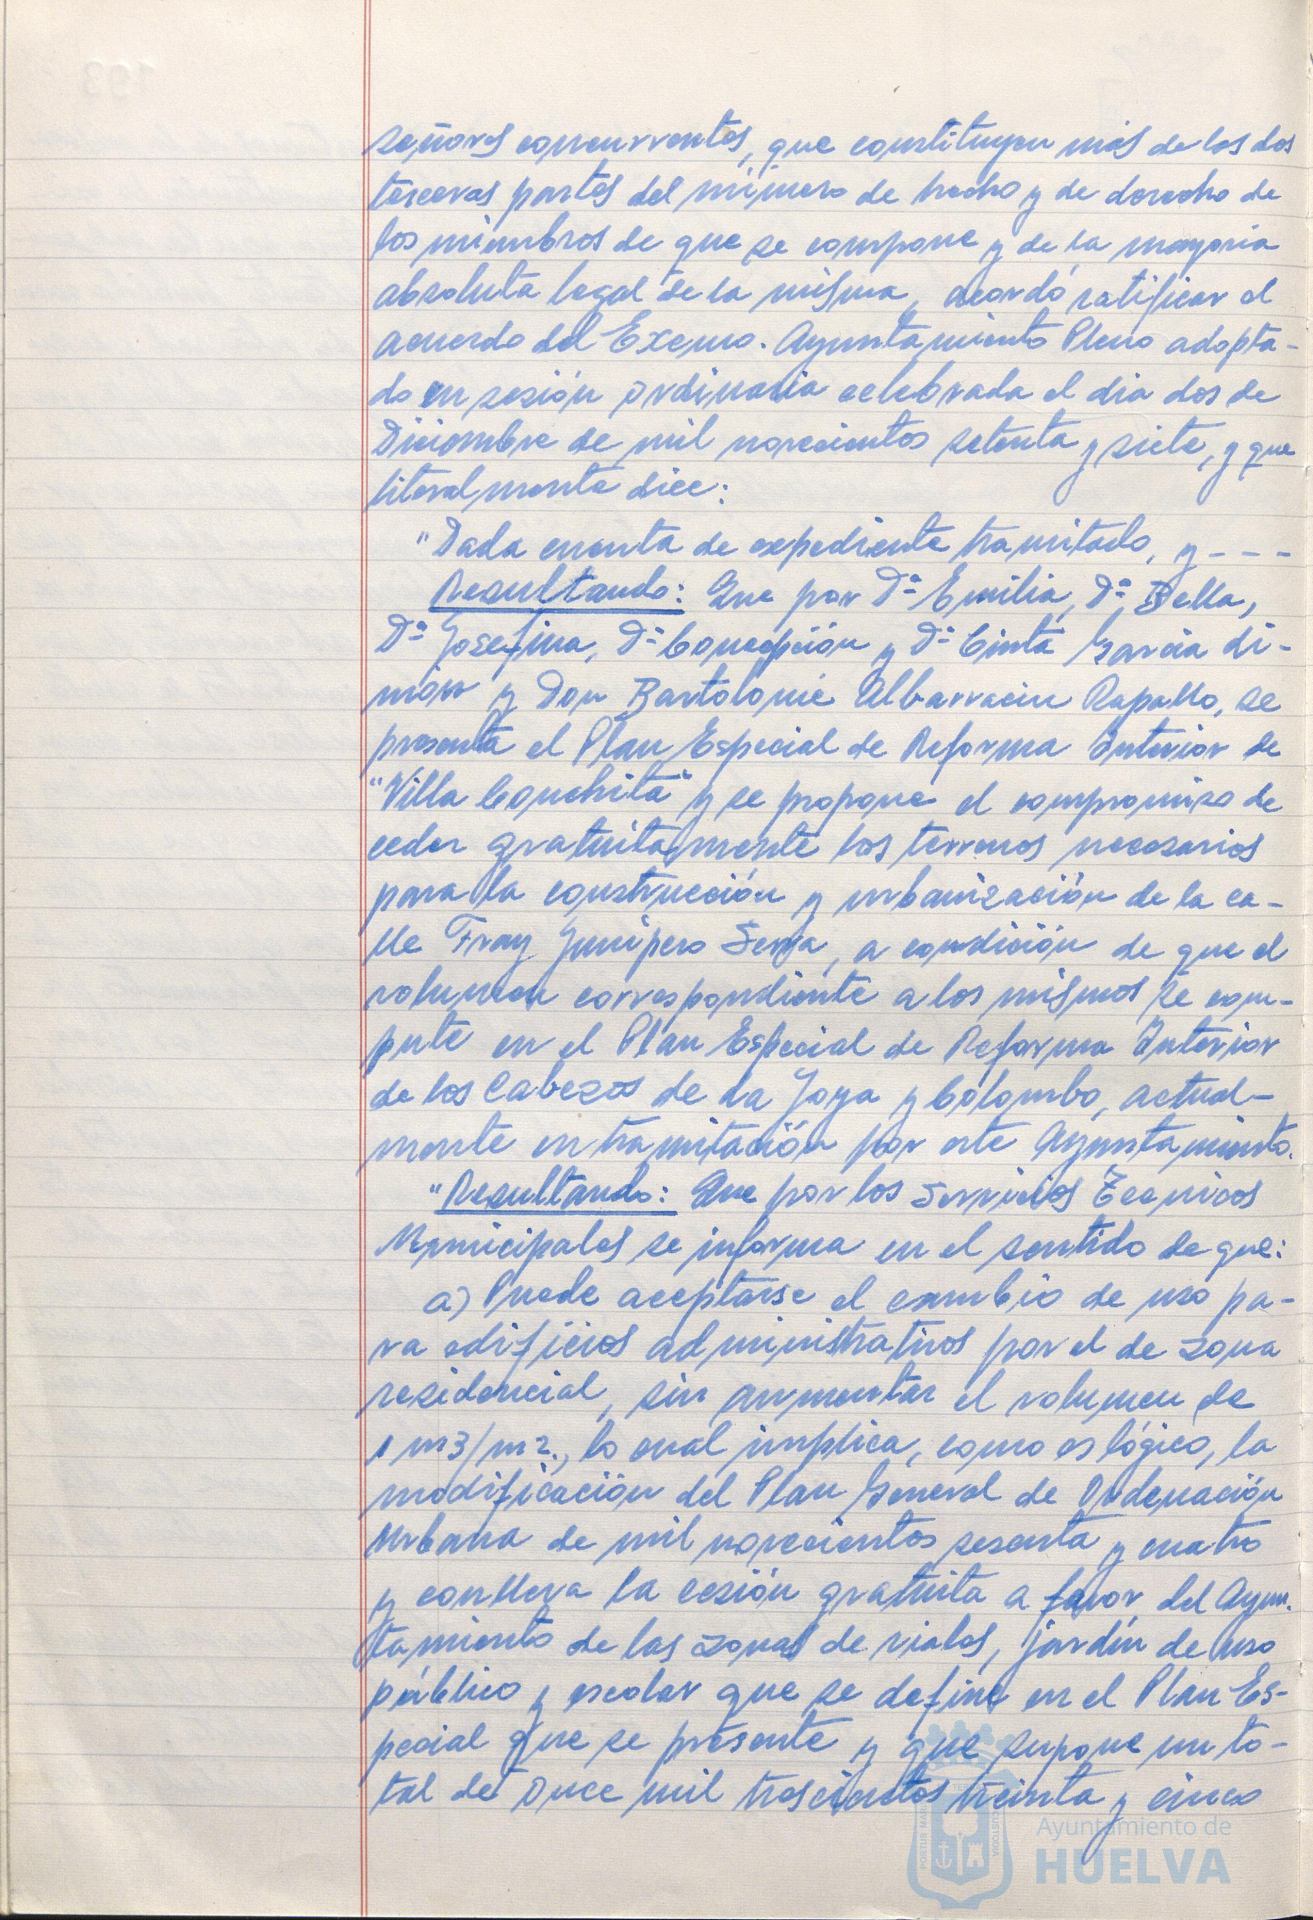 señores concurrentes, que constituyen más de los dos
terceras partes del número de hecho y de derecho de
los miembros de que se compone y de la mayoria
absoluta legal de la misma, acordó ratificar el
acuerdo del Excmo. Ayuntamiento Pleno adopta-
do en sesión ordinaria celebrada el dia dos de
Diciembre de mil novecientos setenta y siete, y que
literalmente dice:
"Dada cuenta de expediente tramitado, y - - - -
Resultando: Que por Dª Emilia, Dª Bella,
Dª Josefina, Dª Concepción y Dª Cinta Garcia di-
món y Don Bartolomé Albarracin Rapallo, se
presenta el Plan Especial de Reforma Interior de
"Villa Conchita" y se propone el compromiso de
ceder gratuitamente los terrenos necesarios
para la construcción y urbanización de la ca-
lle Fray Junipero Serra, a condición de que el
volumen correspondiente a los mismos se com-
pute en el Plan Especial de Reforma Interior
de los Cabezos de La Joya y Colombo, actual-
mente en tramitación por este Ayuntamiento.
"Resultando: Que por los Servicios Tecnicos
Municipales se informa en el sentido de que:
a) Puede aceptarse el cambio de uso pa-
ra edificios administrativos por el de zona
residencial, sin aumentar el volumen de
1 m3/m2., lo cual implica, como es lógico, la
modificación del Plan General de Ordenación
Urbana de mil novecientos sesenta y cuatro
y conlleva la cesión gratuita a favor del Ayun-
tamiento de las zonas de viales, jardín de uso
público y escolar que se define en el Plan Es-
pecial que se presente y que supone un to-
tal de once mil trescientos treinta y cinco
Ayuntamiento de
HUELVA